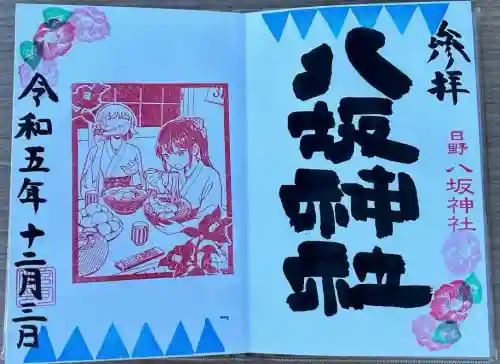 参拝
八坂神社
日野 八坂神社
令和五年十二月三日
31